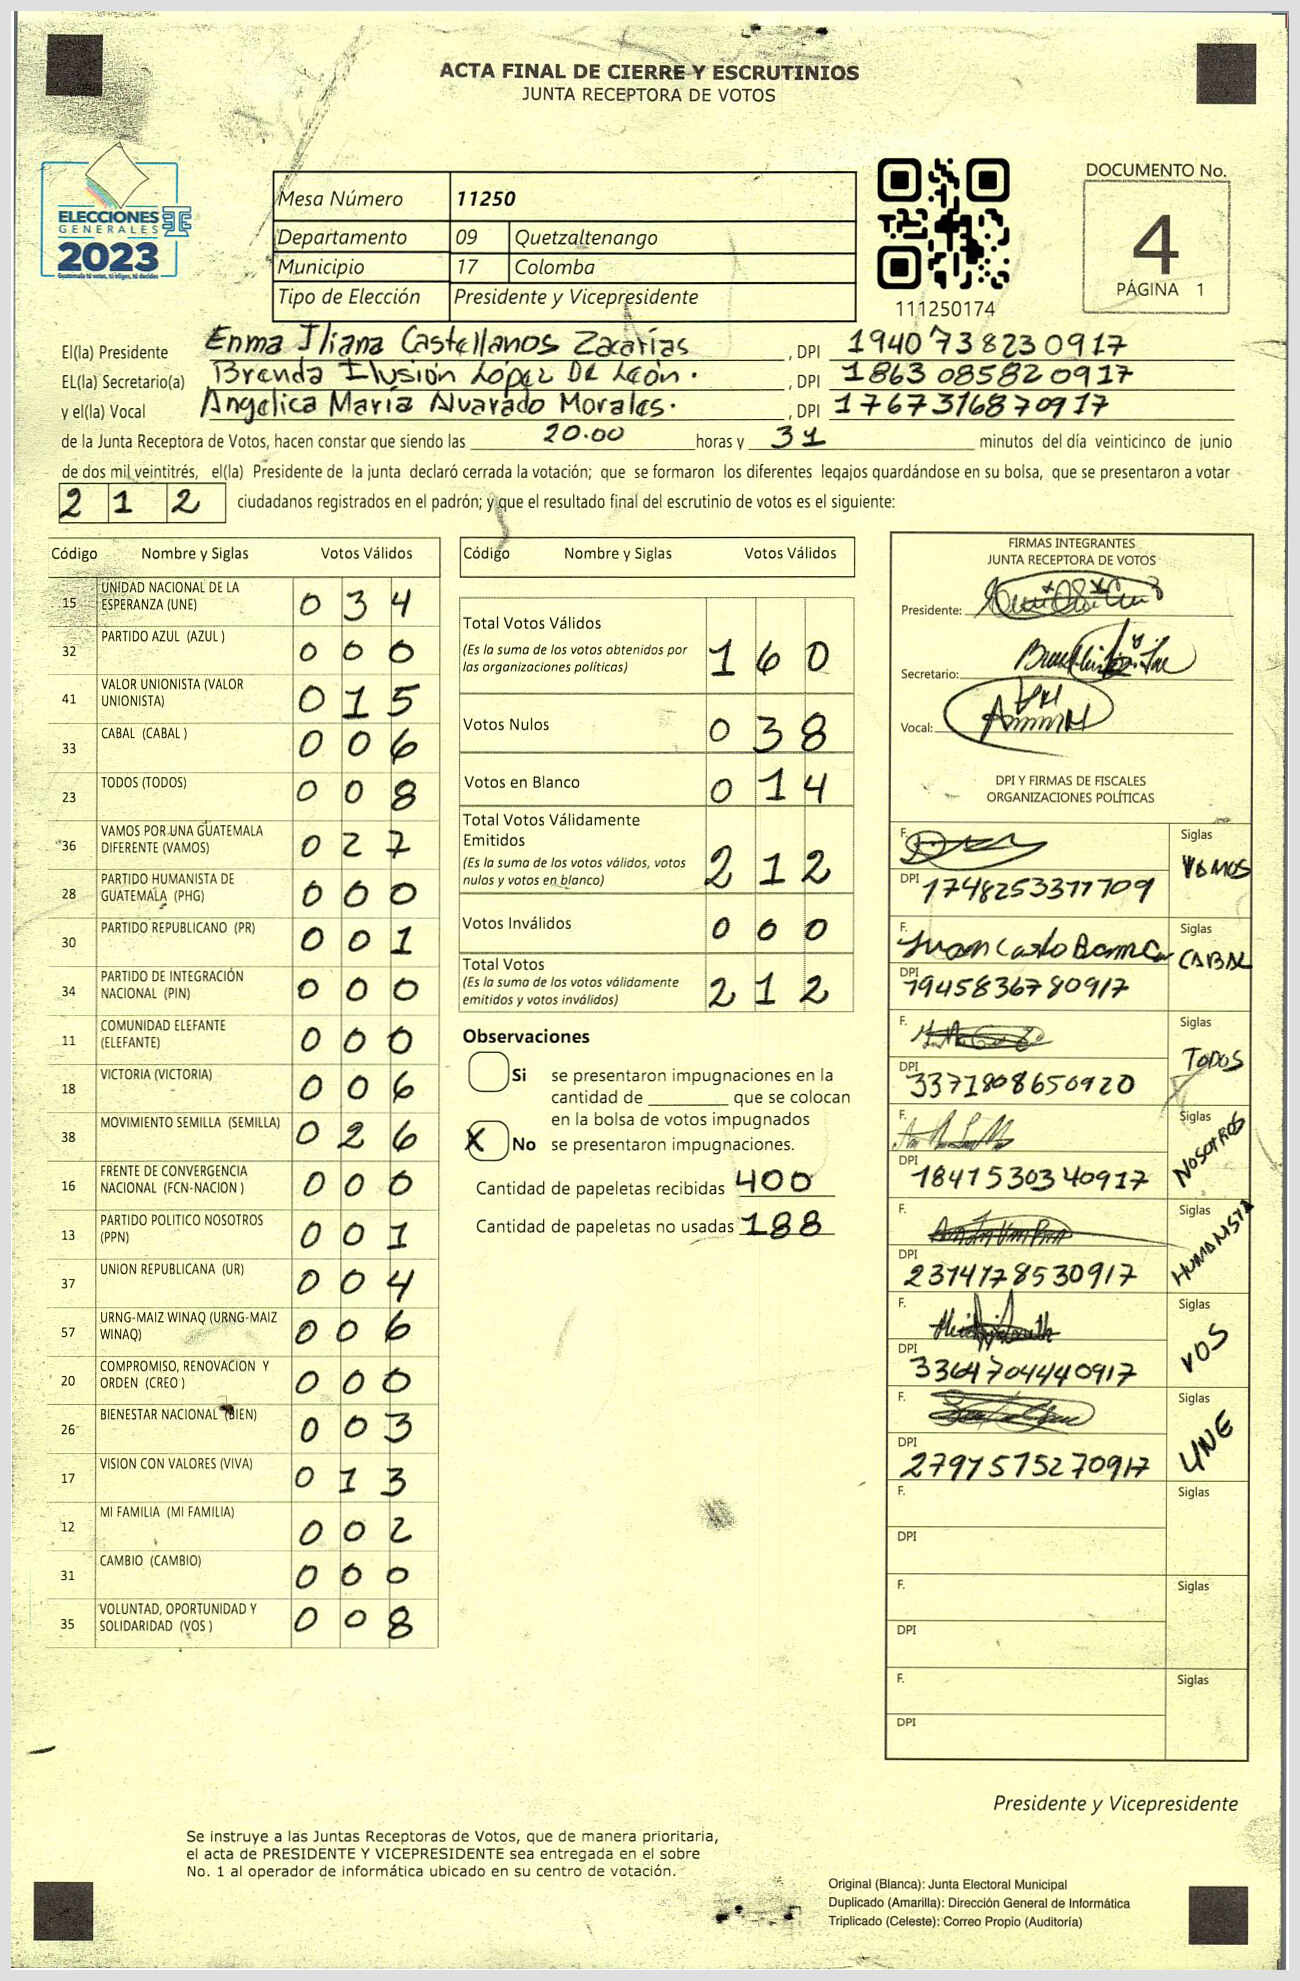 ACTA FINAL DE CIERRE Y ESCRUTINIOS
JUNTA RECEPTORA DE VOTOS
ELECCIONES
GENERALES
2023
Guatemala tú votas, tú eliges, tú decides
Mesa Número 11250
Departamento 09 Quetzaltenango
Municipio 17 Colomba
Tipo de Elección Presidente y Vicepresidente
111250174
DOCUMENTO No.
4
PÁGINA 1
El(la) Presidente Enma Iliana Castellanos Zacarías , DPI 1940738230917
EL(la) Secretario(a) Brenda Ilusión López De León. , DPI 1863085820917
y el(la) Vocal Angelica María Alvarado Morales. , DPI 1767316870917
de la Junta Receptora de Votos, hacen constar que siendo las 20.00 horas y 31 minutos del día veinticinco de junio
de dos mil veintitrés, el(la) Presidente de la junta declaró cerrada la votación; que se formaron los diferentes legajos guardándose en su bolsa, que se presentaron a votar
212 ciudadanos registrados en el padrón; y que el resultado final del escrutinio de votos es el siguiente:
Código Nombre y Siglas Votos Válidos
15 UNIDAD NACIONAL DE LA ESPERANZA (UNE) 034
32 PARTIDO AZUL (AZUL ) 000
41 VALOR UNIONISTA (VALOR UNIONISTA) 015
33 CABAL (CABAL ) 006
23 TODOS (TODOS) 008
36 VAMOS POR UNA GUATEMALA DIFERENTE (VAMOS) 027
28 PARTIDO HUMANISTA DE GUATEMALA (PHG) 000
30 PARTIDO REPUBLICANO (PR) 001
34 PARTIDO DE INTEGRACIÓN NACIONAL (PIN) 000
11 COMUNIDAD ELEFANTE (ELEFANTE) 000
18 VICTORIA (VICTORIA) 006
38 MOVIMIENTO SEMILLA (SEMILLA) 026
16 FRENTE DE CONVERGENCIA NACIONAL (FCN-NACION ) 000
13 PARTIDO POLITICO NOSOTROS (PPN) 001
37 UNION REPUBLICANA (UR) 004
57 URNG-MAIZ WINAQ (URNG-MAIZ WINAQ) 006
20 COMPROMISO, RENOVACION Y ORDEN (CREO ) 000
26 BIENESTAR NACIONAL (BIEN) 003
17 VISION CON VALORES (VIVA) 013
12 MI FAMILIA (MI FAMILIA) 002
31 CAMBIO (CAMBIO) 000
35 VOLUNTAD, OPORTUNIDAD Y SOLIDARIDAD (VOS ) 008
Código Nombre y Siglas Votos Válidos
Total Votos Válidos
(Es la suma de los votos obtenidos por las organizaciones políticas) 160
Votos Nulos 038
Votos en Blanco 014
Total Votos Válidamente Emitidos
(Es la suma de los votos válidos, votos nulos y votos en blanco) 212
Votos Inválidos 000
Total Votos
(Es la suma de los votos válidamente emitidos y votos inválidos) 212
Observaciones
Si se presentaron impugnaciones en la
cantidad de que se colocan
en la bolsa de votos impugnados
X No se presentaron impugnaciones.
Cantidad de papeletas recibidas 400
Cantidad de papeletas no usadas 188
FIRMAS INTEGRANTES
JUNTA RECEPTORA DE VOTOS
Presidente:
Secretario:
Vocal:
DPI Y FIRMAS DE FISCALES
ORGANIZACIONES POLÍTICAS
F. Siglas VAMOS
DPI 1748253371709
F. Juan Carlo Siglas CABAL
DPI 1945836780917
F. Siglas TODOS
DPI 3371808650920
F. Siglas NOSOTROS
DPI 1841530340917
F. Siglas HUMANISTA
DPI 2314178530917
F. Siglas VOS
DPI 3364704440917
F. Siglas UNE
DPI 2791575270917
F. Siglas
DPI
F. Siglas
DPI
F. Siglas
DPI
Presidente y Vicepresidente
Se instruye a las Juntas Receptoras de Votos, que de manera prioritaria,
el acta de PRESIDENTE Y VICEPRESIDENTE sea entregada en el sobre
No. 1 al operador de informática ubicado en su centro de votación.
Original (Blanca): Junta Electoral Municipal
Duplicado (Amarilla): Dirección General de Informática
Triplicado (Celeste): Correo Propio (Auditoría)